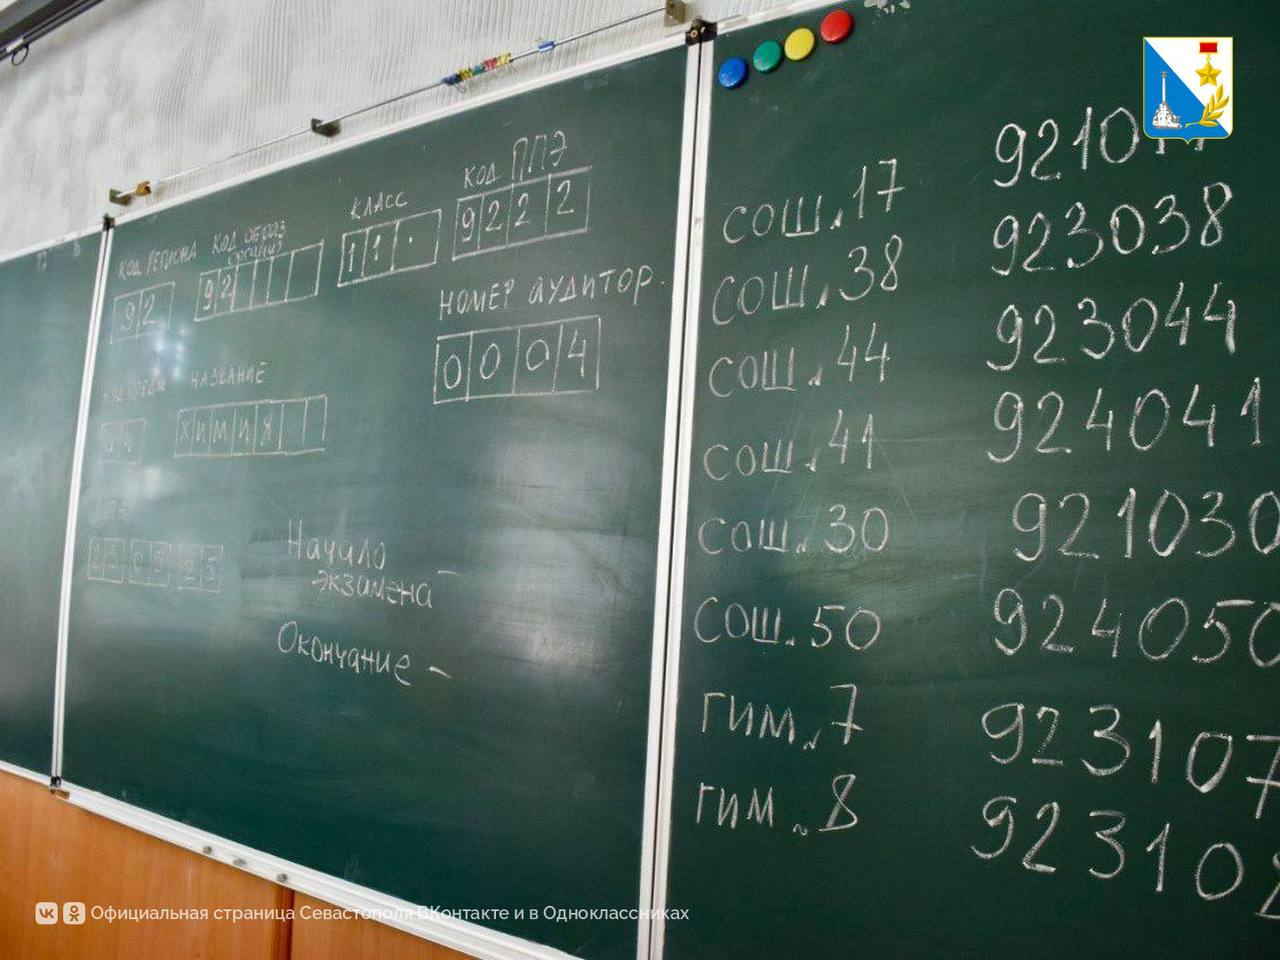 КОД РЕГИОНА
92
КОД ОБРАЗ
организ
92
КЛАСС
11.
КОД ППЭ
9222
НОМЕР АУДИТОР.
0004
НАЗВАНИЕ
ХИМИЯ
04
23 05 25
Начало
экзамена –
Окончание –
СОШ. 17
СОШ. 38 923038
СОШ. 44 923044
СОШ. 41 924041
СОШ. 30 921030
СОШ. 50 924050
ГИМ. 7 923107
ГИМ. 8 923108
Официальная страница Севастополя ВКонтакте и в Одноклассниках